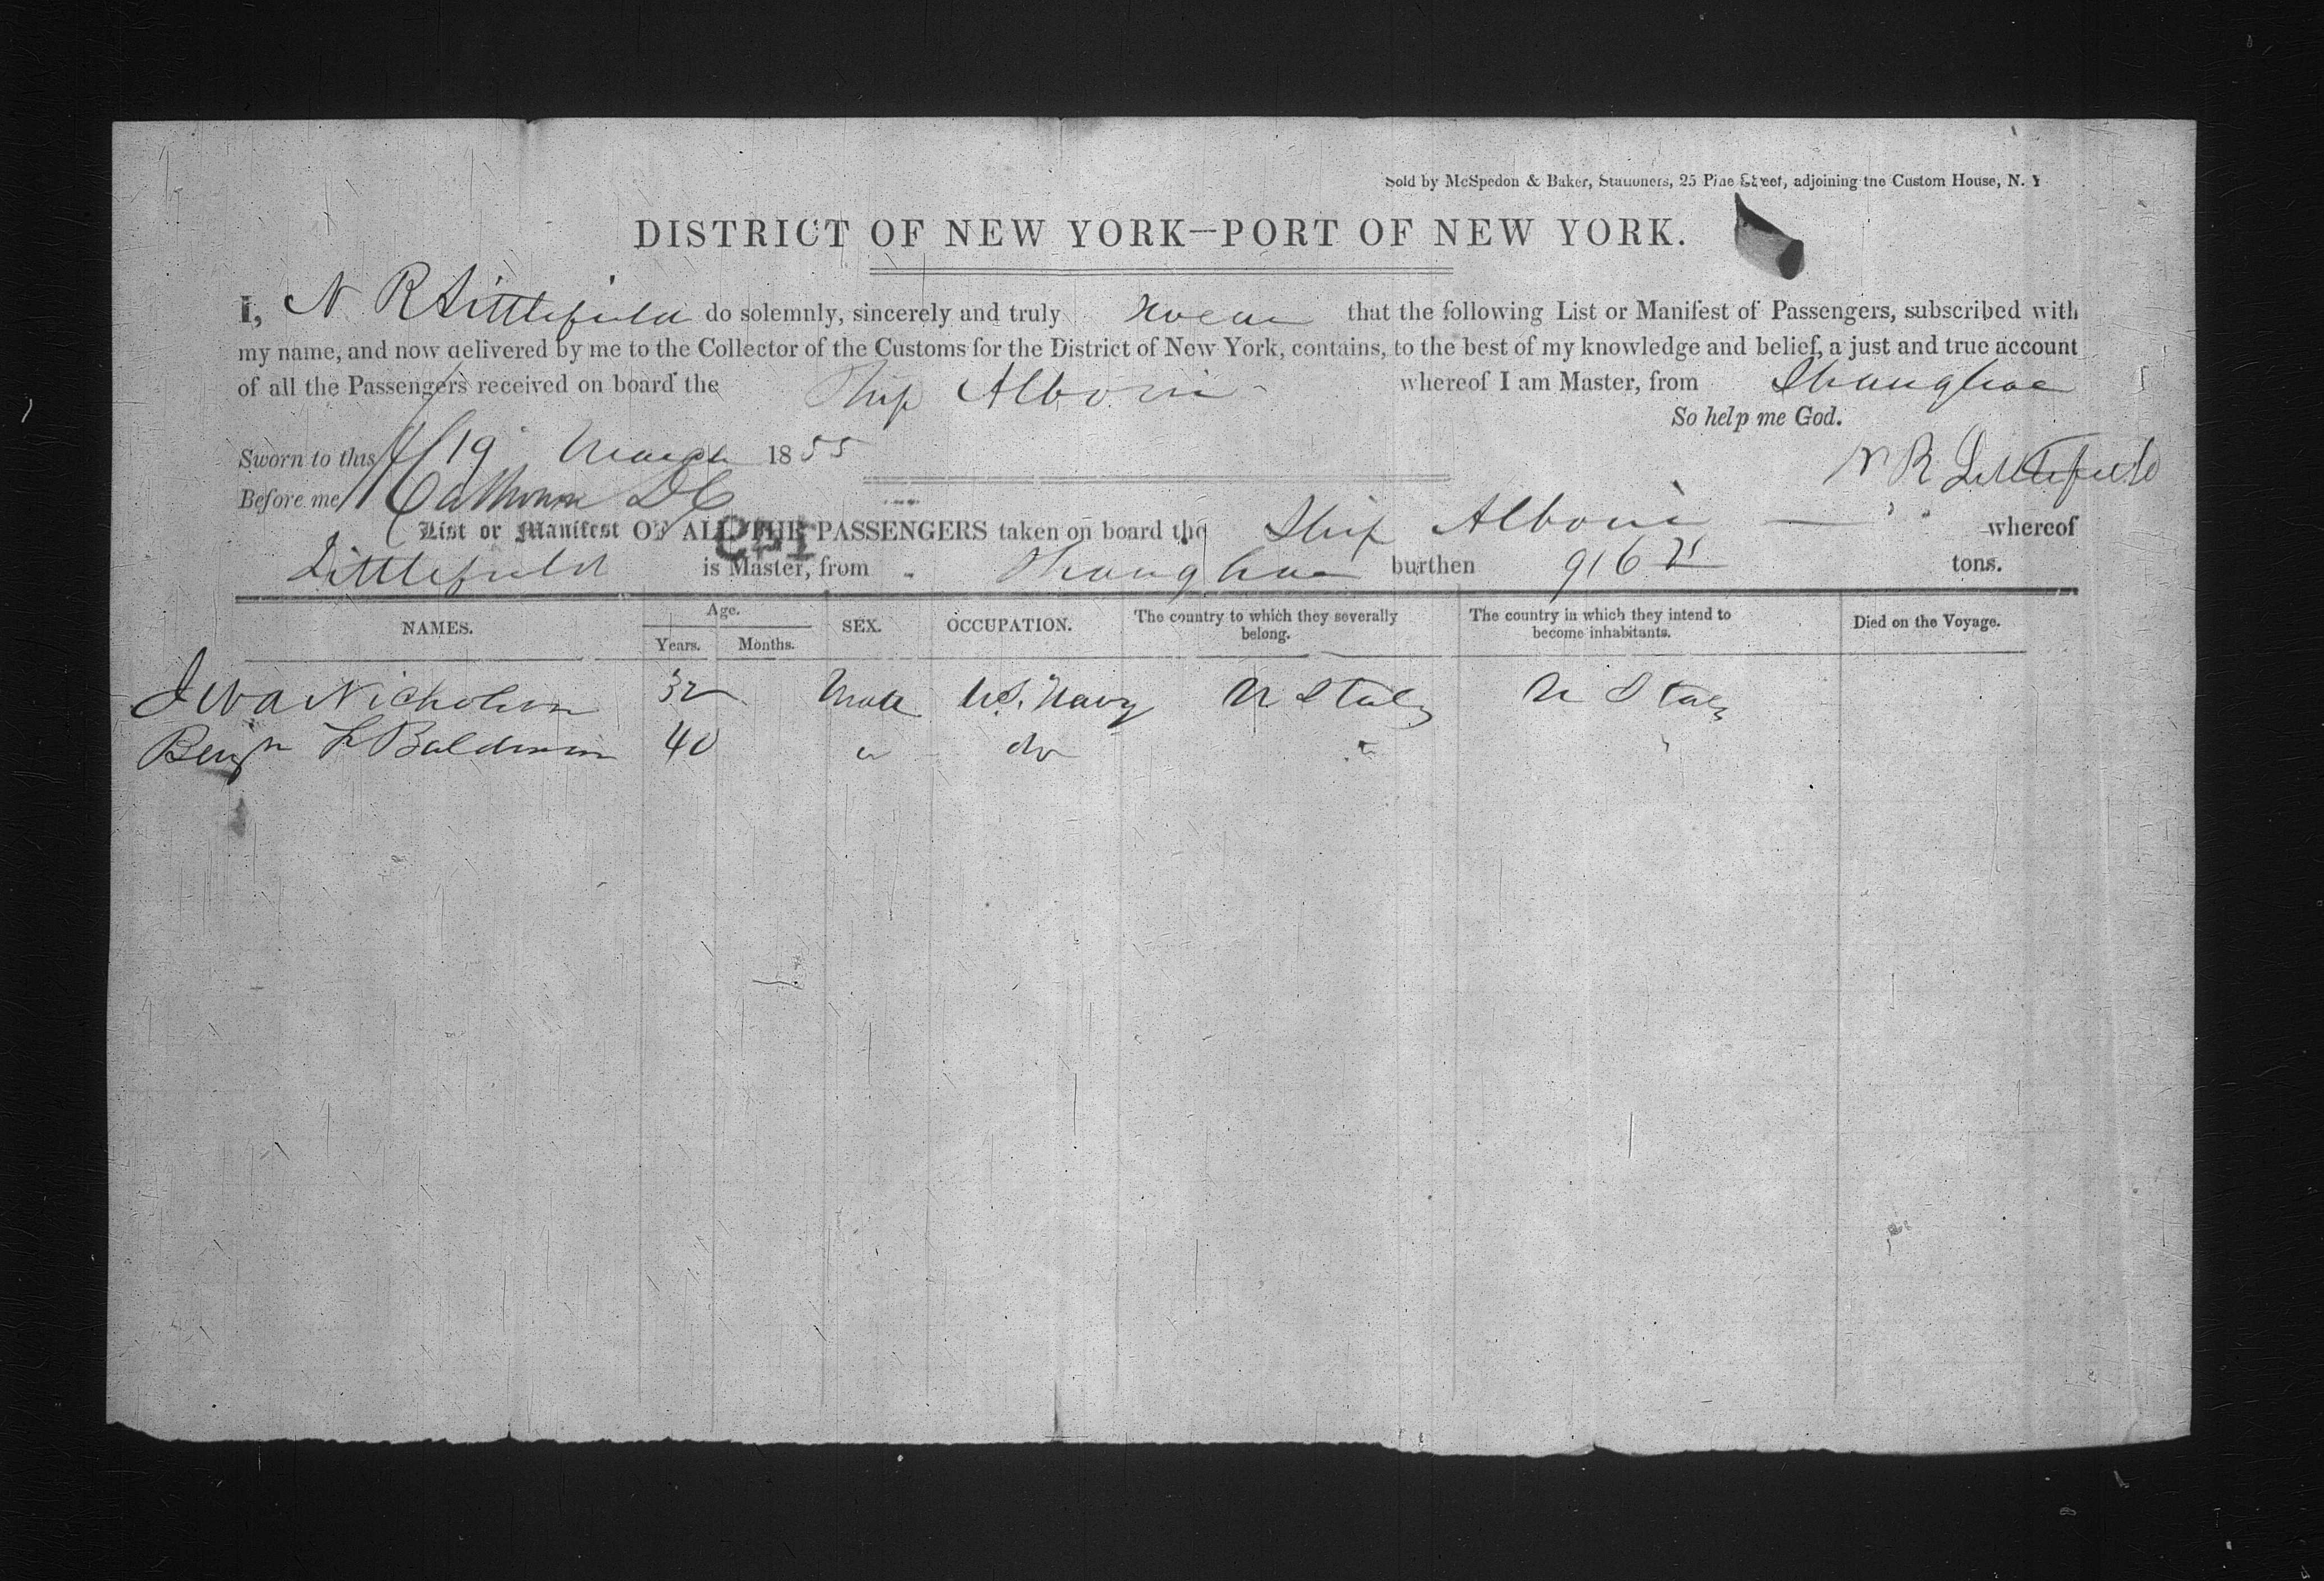 Sold by McSpedon & Baker, Stationers, 25 Pine Street, adjoining the Custom House, N. Y
DISTRICT OF NEW YORK—PORT OF NEW YORK.
I, N R Littlefield do solemnly, sincerely and truly swear that the following List or Manifest of Passengers, subscribed with
my name, and now delivered by me to the Collector of the Customs for the District of New York, contains, to the best of my knowledge and belief, a just and true account
of all the Passengers received on board the Ship Alboni whereof I am Master, from Shanghae
So help me God.
Sworn to this 19 March 1855
N R Littlefield
Before me, Calhoun DC
List or Manifest OF ALL THE PASSENGERS taken on board the Ship Alboni whereof
Littlefield is Master, from Shanghae burthen 916 tons.
NAMES. Age. Years. Months. SEX. OCCUPATION. The country to which they severally belong. The country in which they intend to become inhabitants. Died on the Voyage.
Nicholson 32 Male U.S. Navy U States U States
Benjn L Baldwin 40 " do " "